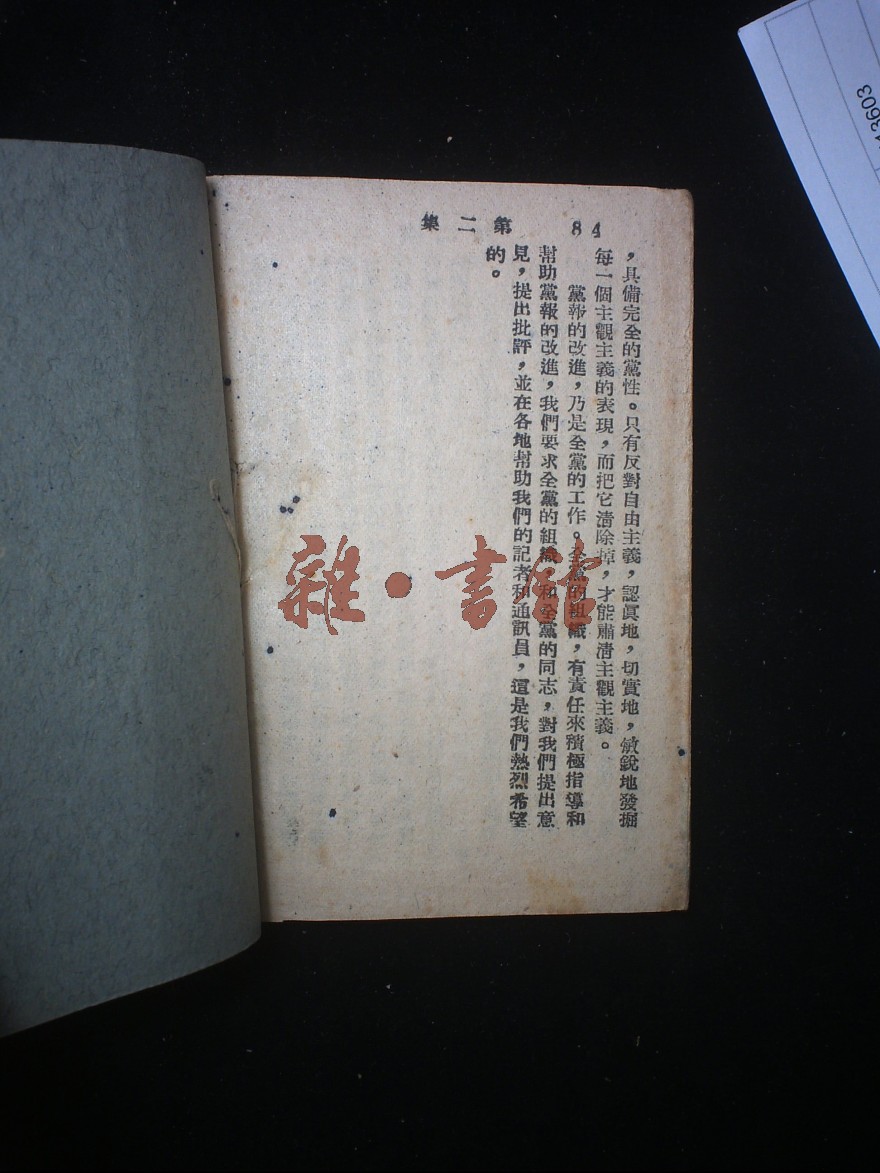 84 第二集
，具備完全的黨性。只有反對自由主義，認眞地，切實地，敏銳地發掘
每一個主觀主義的表現，而把它淸除掉，才能肅淸主觀主義。
黨報的改進，乃是全黨的工作。全黨的組織，有責任來積極指導和
幫助黨報的改進，我們要求全黨的組織，和全黨的同志，對我們提出意
見，提出批評，並在各地幫助我們的記者和通訊員，這是我們熱烈希望
的。
雜·書館